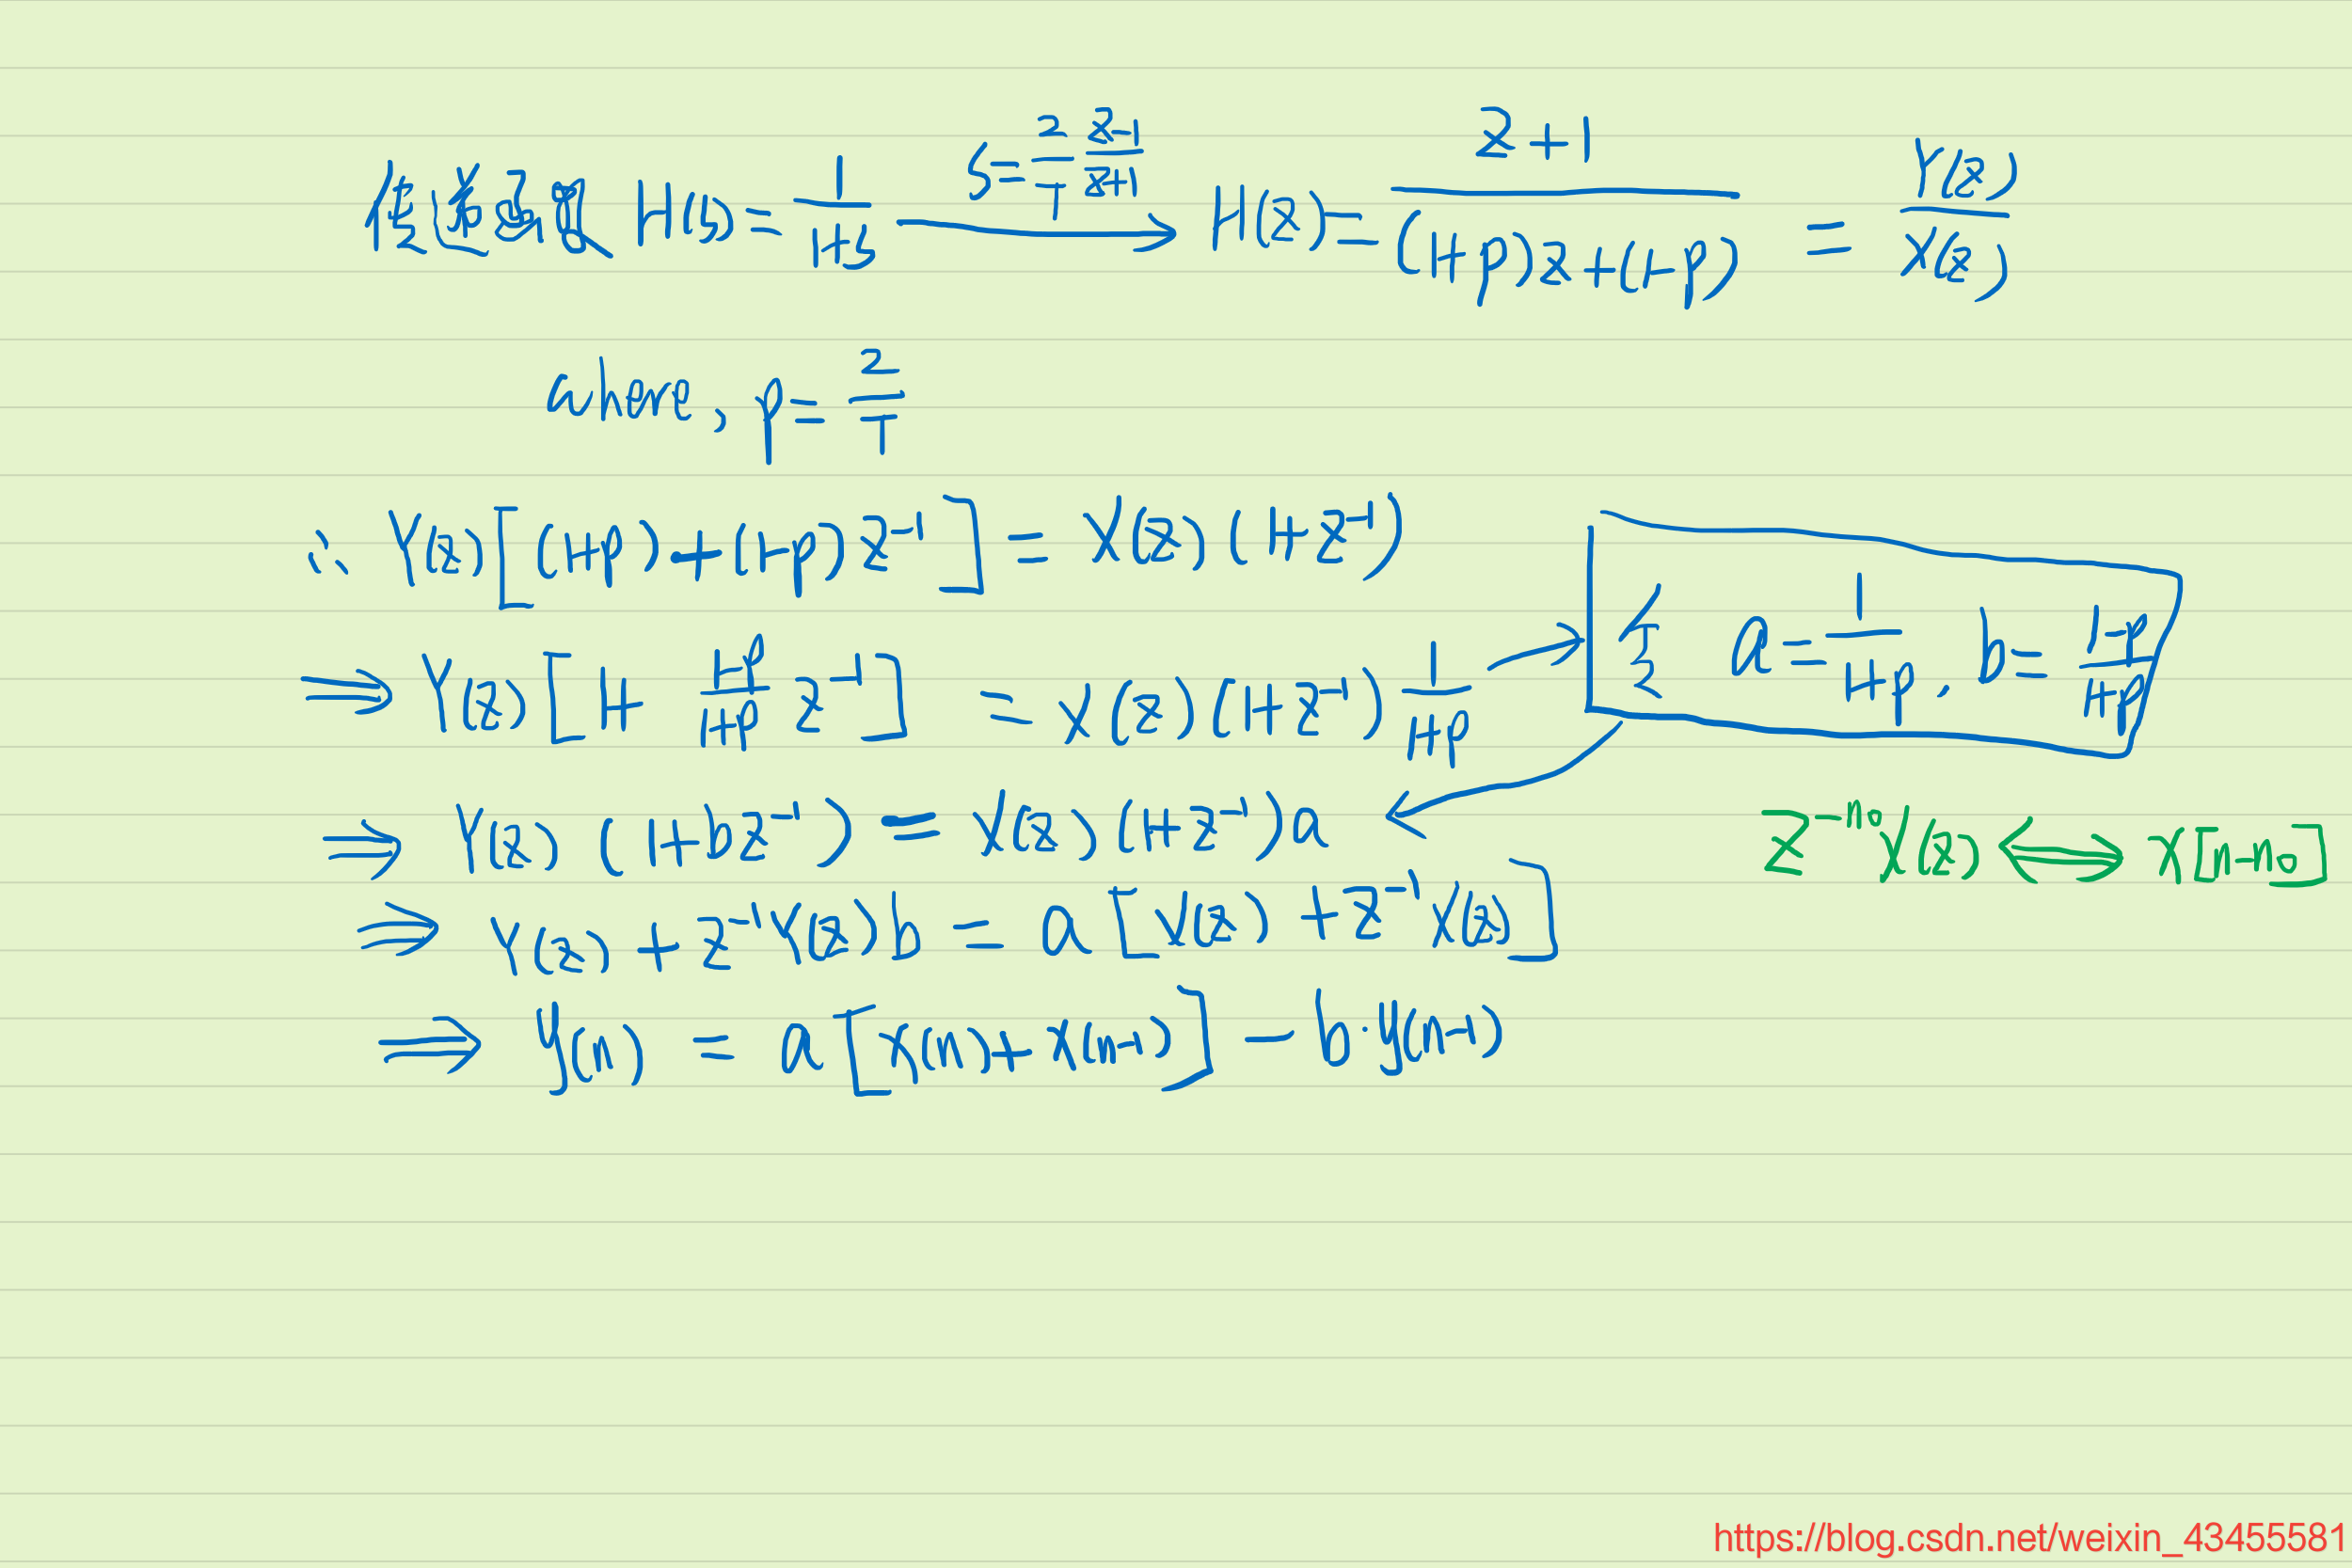 传递函数 H(s) = 1/(1+s) → s = 2/T (z-1)/(z+1) H(z) = (z+1)/((1+p)z+(1-p)) = Y(z)/X(z)
where, p = 2/T
∴ Y(z)[(1+p)+(1-p)z⁻¹] = X(z)(1+z⁻¹)
⇒ Y(z)[1+ (1-p)/(1+p) z⁻¹] = X(z)(1+z⁻¹) 1/(1+p) → 令 a = 1/(1+p), b = (1-p)/(1+p)
⇒ Y(z)(1+bz⁻¹) = X(z)(1+z⁻¹)a
z^(-n₀) X(z) ⇔ x[n-n₀]
⇒ Y(z) + z⁻¹Y(z)b = a[X(z) + z⁻¹X(z)]
⇒ y(n) = a[x(n)+x(n-1)] - b·y(n-1)
https://blog.csdn.net/weixin_43455581